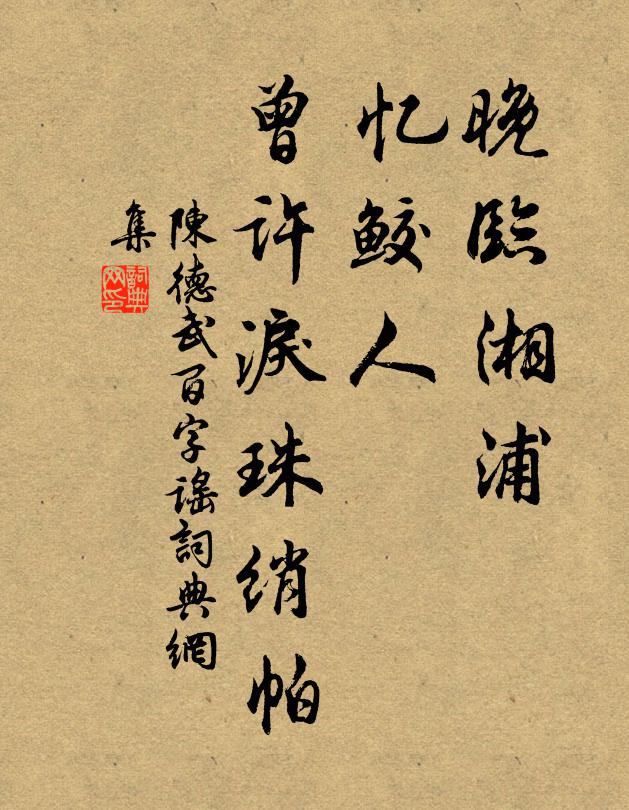 晚臨湘浦
忆鲛人
曾许淚珠绡帕
陳德武百字謠詞典網
集
詞典
网印